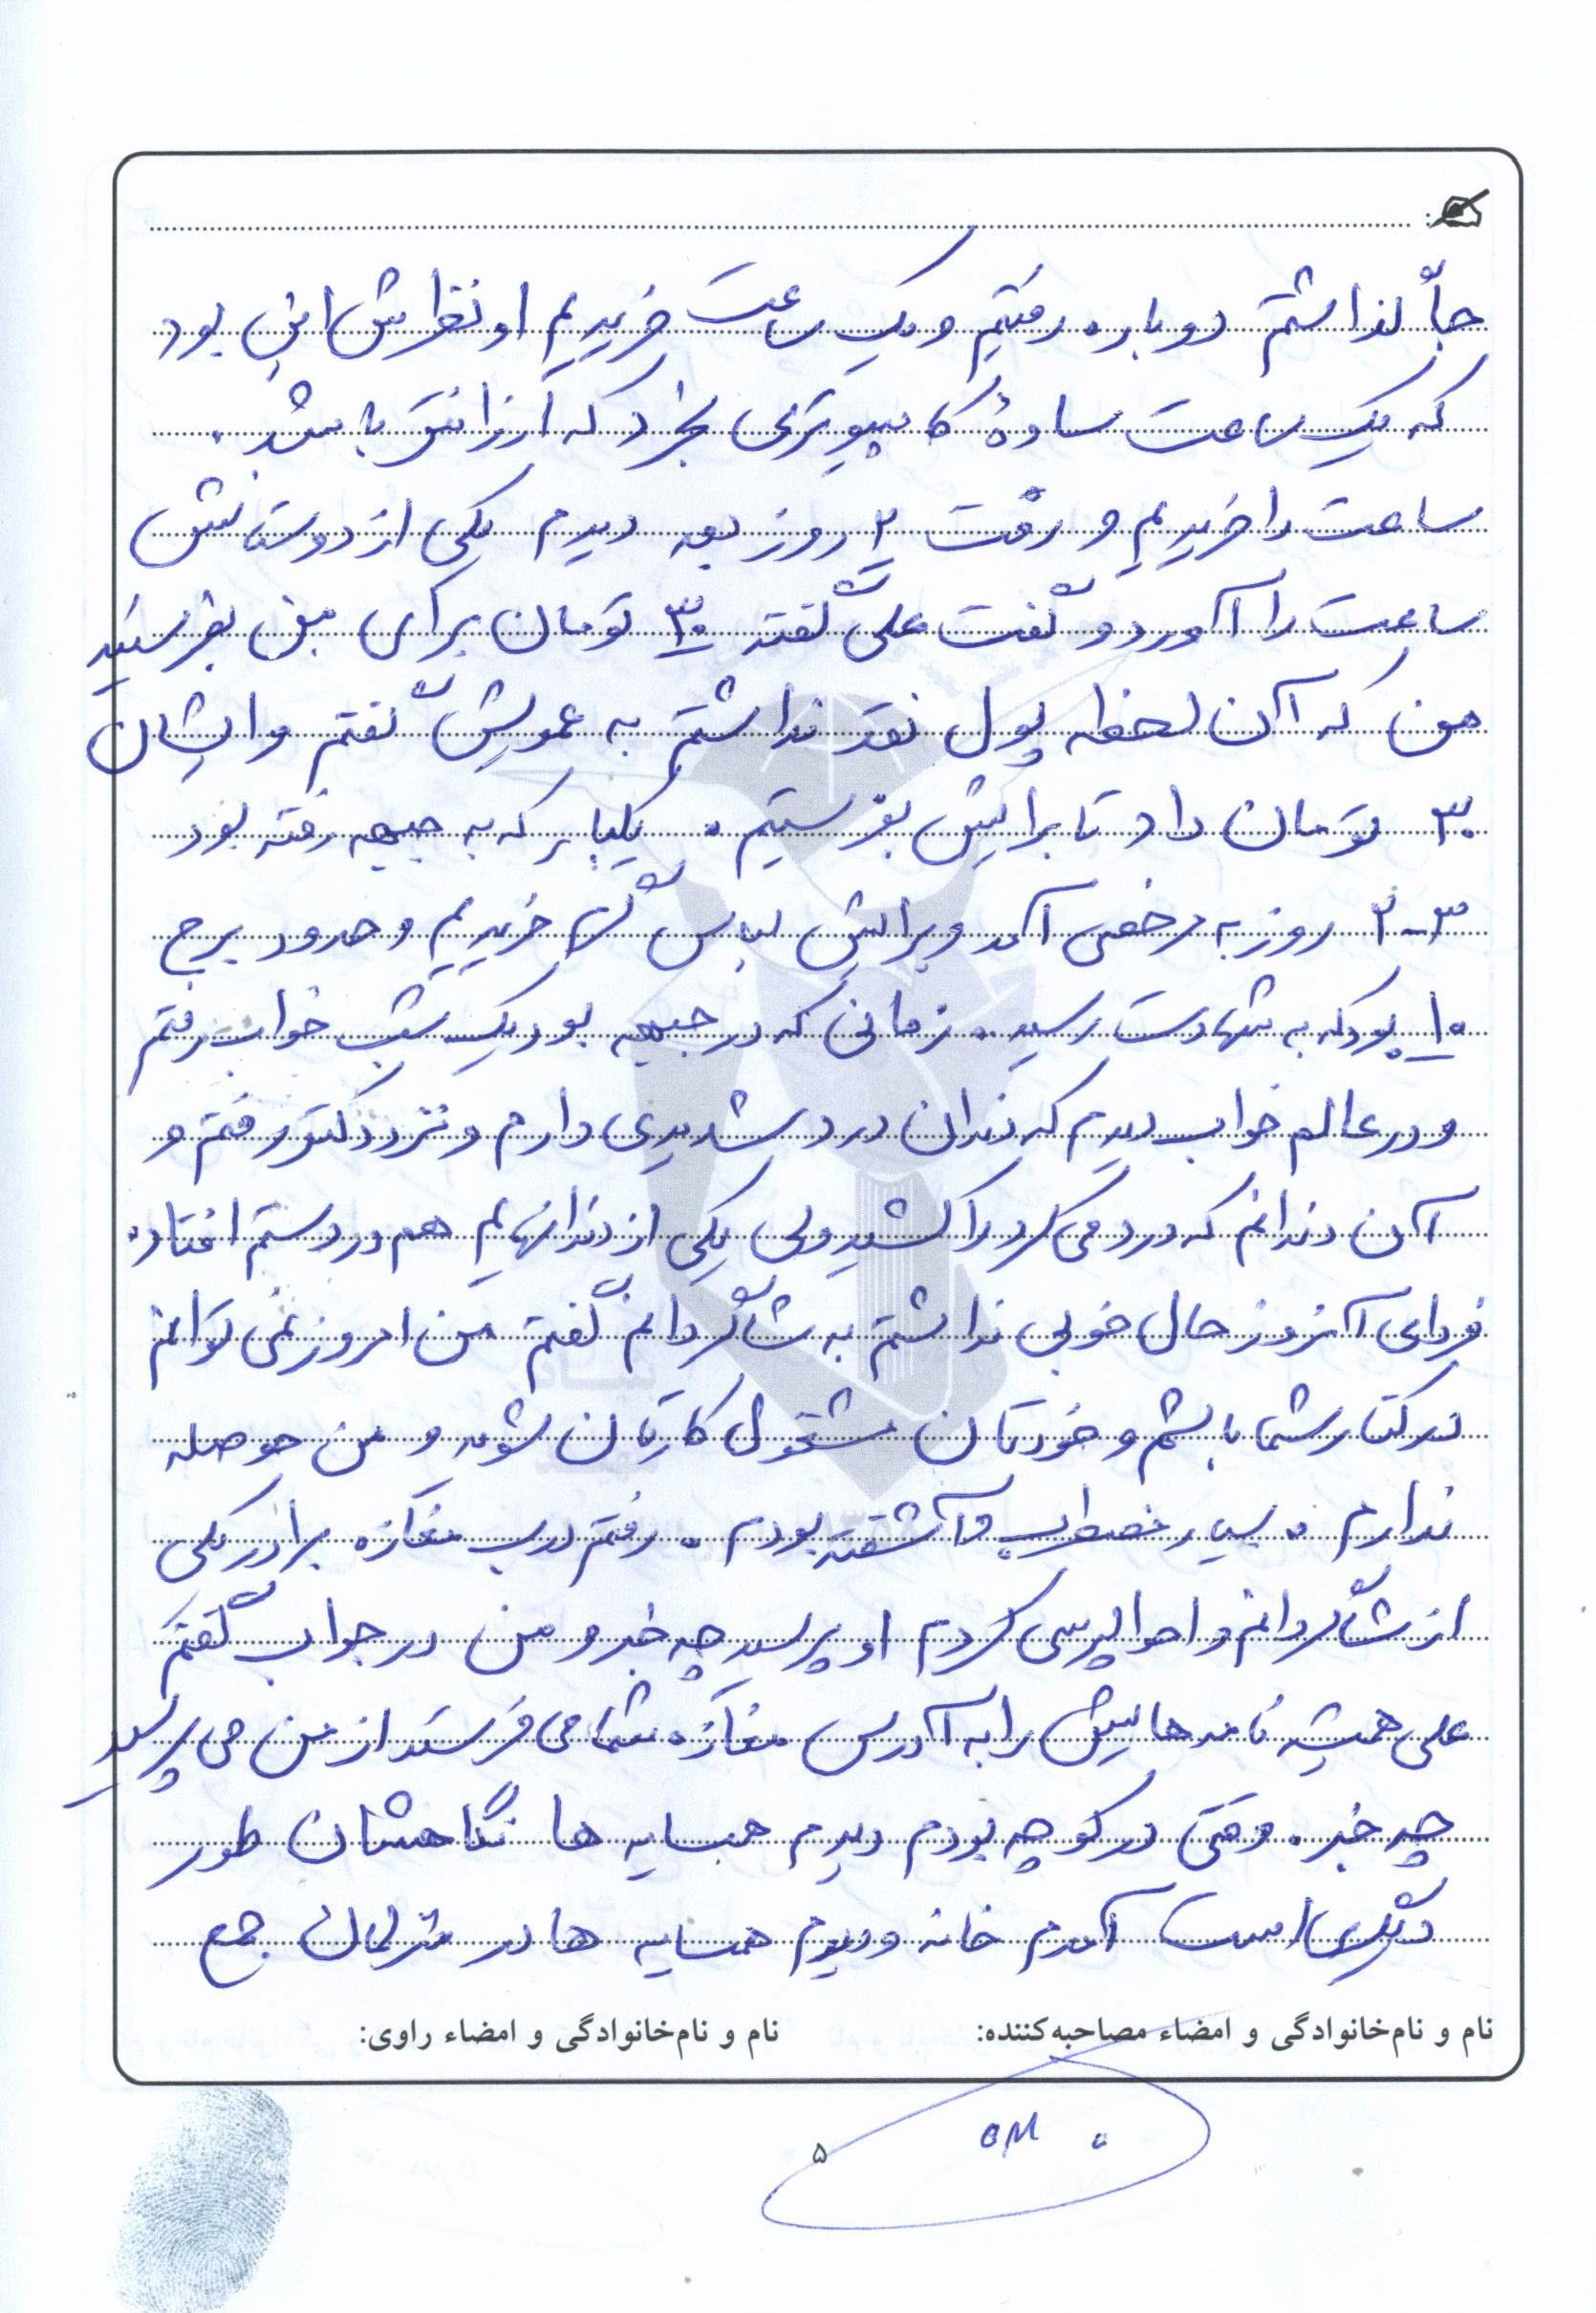 جا گذاشتم دوباره رفتیم و یک ساعت خریدیم او نظرش این بود
که یک ساعت سادهٔ کامپیوتری بخرد که ارزانتر باشد.
ساعت را خریدیم و رفت ۲ روز بعد دیدم یکی از دوستانش
ساعت را آورد و گفت علی گفته ۳۰ تومان برای من بفرستید
من که آن لحظه پول نقد نداشتم به عمویش گفتم و ایشان
۳۰ تومان داد تا برایش بفرستیم. یکبار که به جبهه رفته بود
۲-۳ روز به مرخصی آمد و برایش لباس گرم خریدیم و حدود برج
۱۰ بود که به شهادت رسید. زمانی که در جبهه بود یک شب خواب رفتم
و در عالم خواب دیدم که دندان درد شدیدی دارم و نزد دکتر رفتم و
آن دندانم که درد می کرد را کشید ولی یکی از دندانهایم هم در دستم افتاد.
فردای آنروز حال خوبی نداشتم به شاگردانم گفتم من امروز نمی توانم
در کنار شما باشم و خودتان مشغول کارتان شوید و من حوصله
ندارم. بسیار مضطرب و آشفته بودم. رفتم درب مغازه برادر یکی
از شاگردانم و احوالپرسی کردم او پرسید چه خبر و من در جواب گفتم
علی همیشه نامه هایش را به آدرس مغازه شما می فرستد از من می پرسید
چه خبر. وقتی در کوچه بودم دیدم همسایه ها نگاهشان طور
دیگری است آمدم خانه و دیدم همسایه ها در منزلمان جمع
نام و نام‌خانوادگی و امضاء مصاحبه‌کننده: نام و نام‌خانوادگی و امضاء راوی:
۵